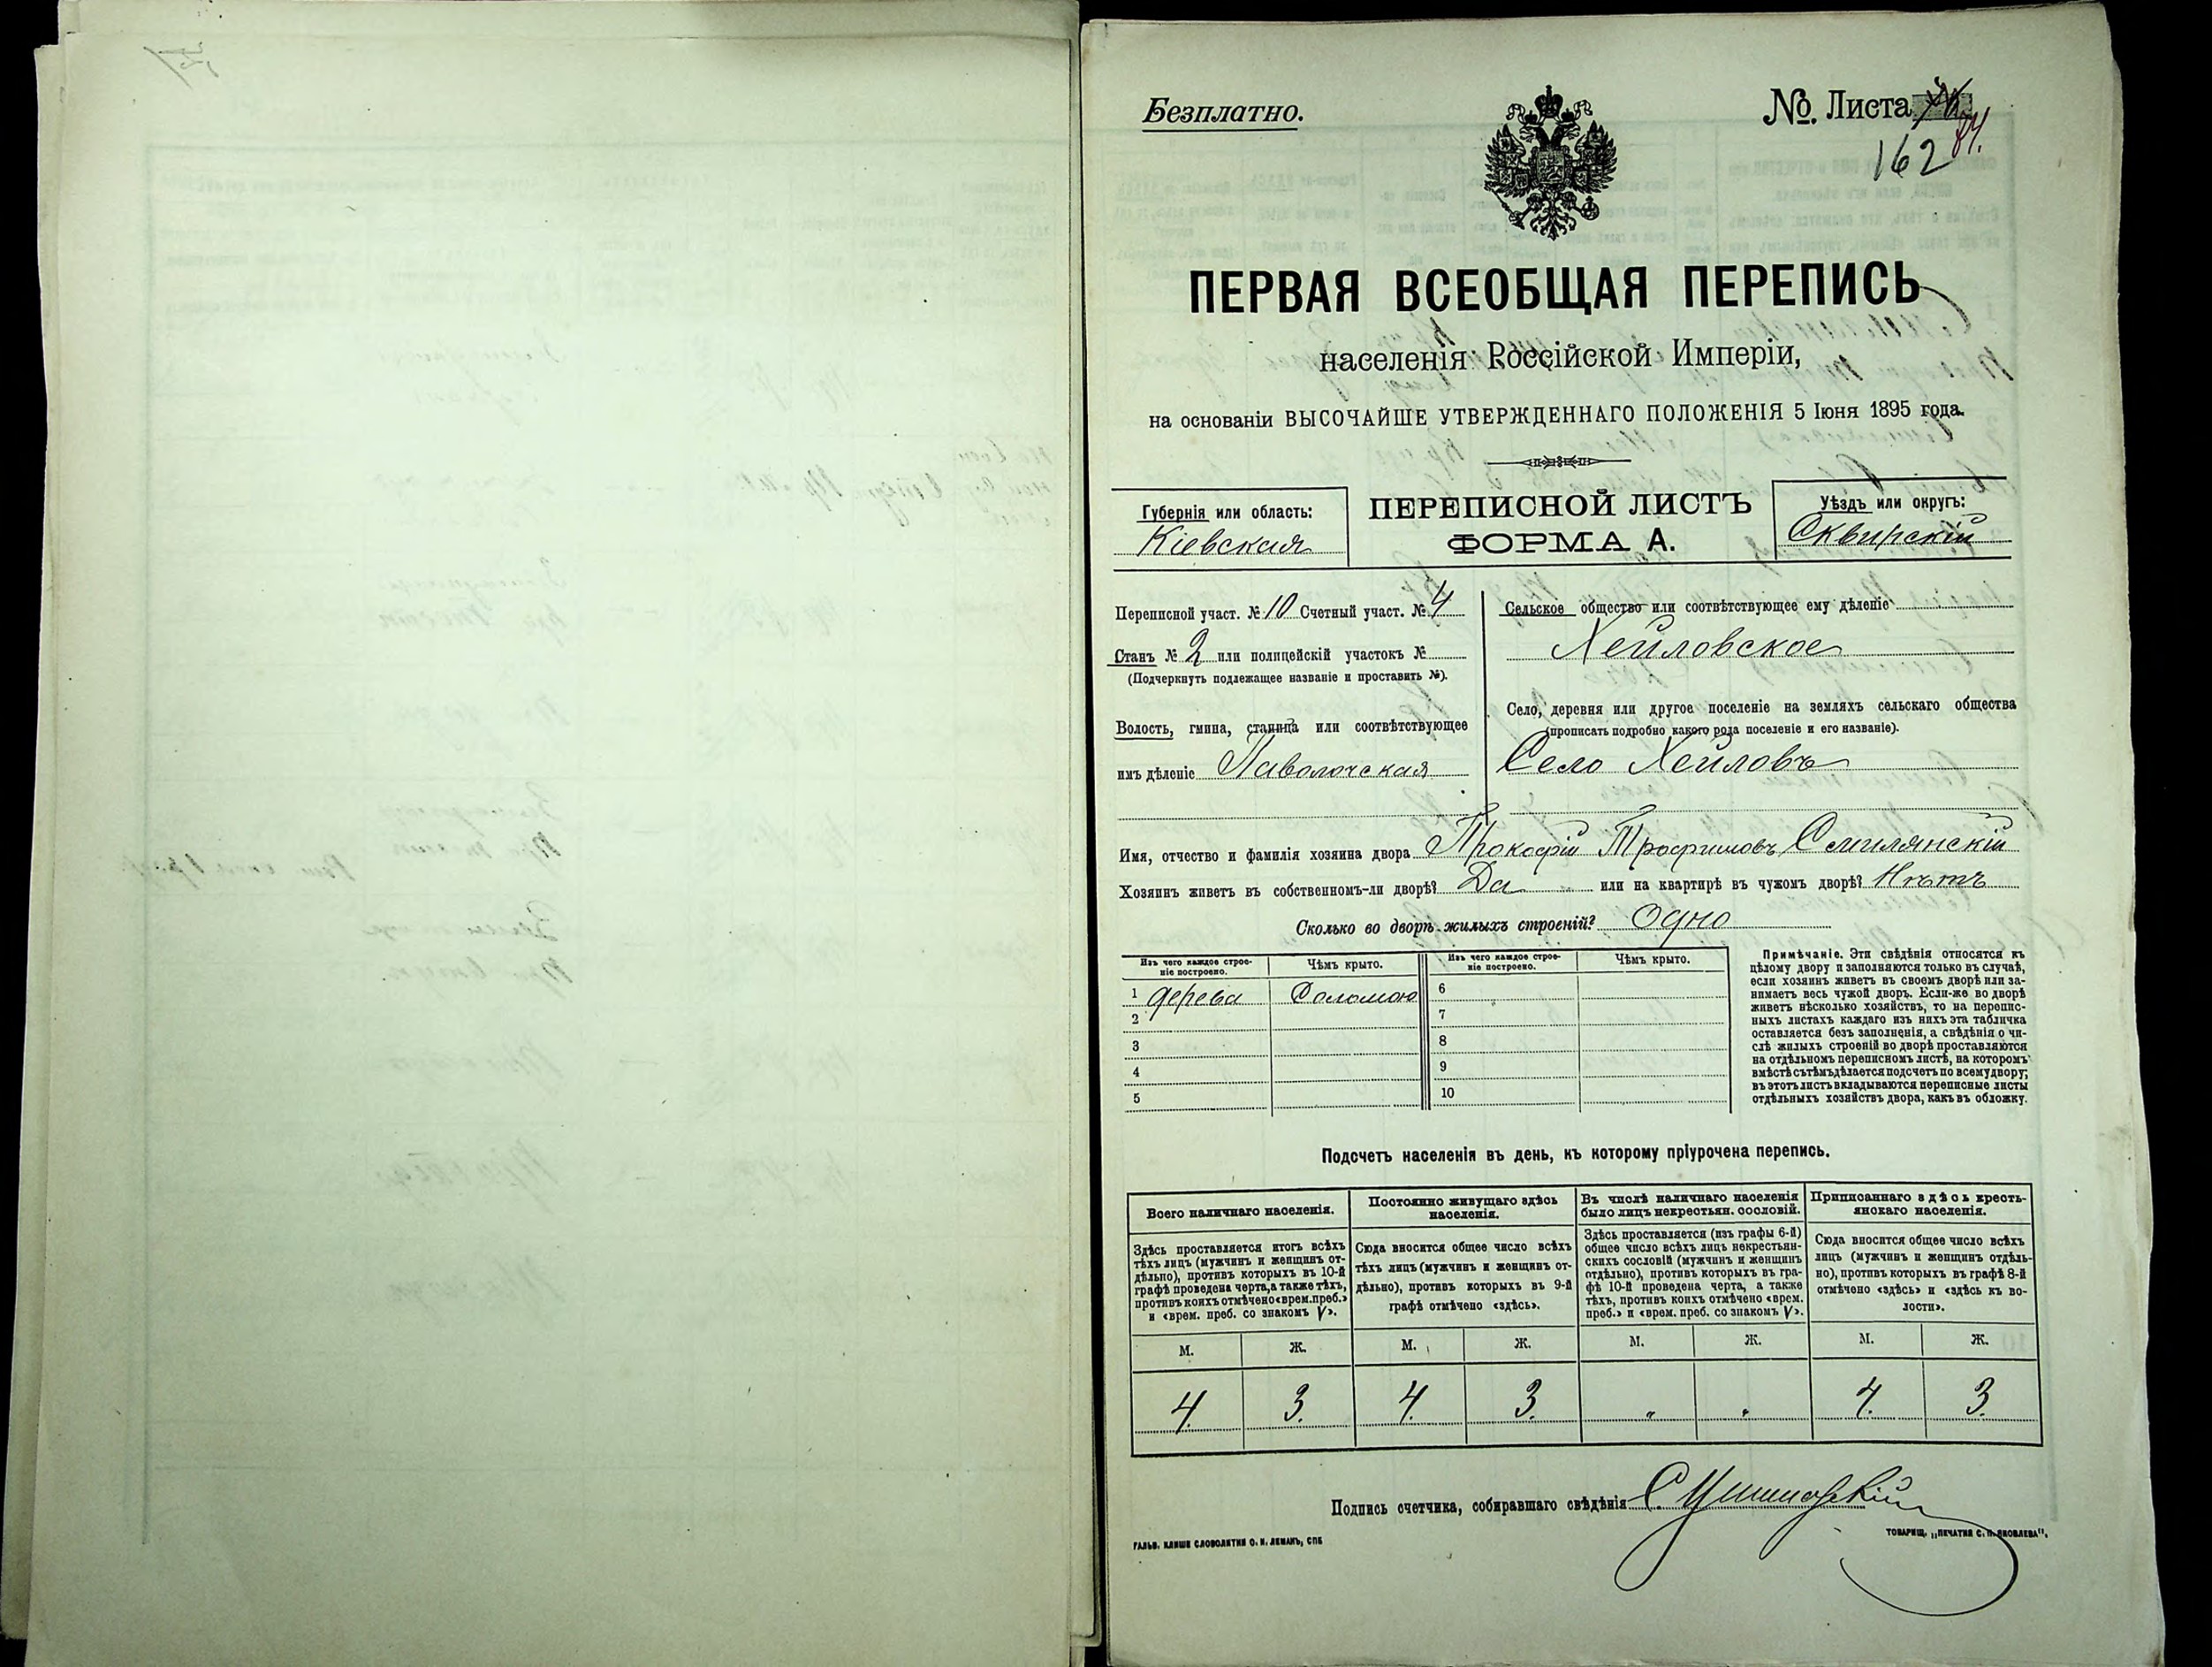 Безплатно.
№ Листа
84.
162
ПЕРВАЯ ВСЕОБЩАЯ ПЕРЕПИСЬ
населенія Россійской Имперіи,
на основаніи ВЫСОЧАЙШЕ УТВЕРЖДЕННАГО ПОЛОЖЕНІЯ 5 Іюня 1895 года.
Губернія или область:
Кіевская
ПЕРЕПИСНОЙ ЛИСТЪ
ФОРМА А.
Уѣздъ или округъ:
Сквирскій
Переписной участ. № 10 Счетный участ. № 4
Станъ № 2 или полицейскій участокъ №
(Подчеркнуть подлежащее названіе и проставить №).
Волость, гмина, станица или соотвѣтствующее
имъ дѣленіе Паволочская
Сельское общество или соотвѣтствующее ему дѣленіе
Хейловское
Село, деревня или другое поселеніе на земляхъ сельскаго общества
(прописать подробно какого рода поселеніе и его названіе).
Село Хейловъ
Имя, отчество и фамилія хозяина двора Прокофій Трофимовъ Смилянскій
Хозяинъ живетъ въ собственномъ-ли дворѣ? Да или на квартирѣ въ чужомъ дворѣ? Нѣтъ
Сколько во дворѣ жилыхъ строеній? Одно
Изъ чего каждое строе-
ніе построено.
Чѣмъ крыто.
Изъ чего каждое строе-
ніе построено.
Чѣмъ крыто.
1 дерева Соломою 6
2 7
3 8
4 9
5 10
Примѣчаніе. Эти свѣдѣнія относятся къ
цѣлому двору и заполняются только въ случаѣ,
если хозяинъ живетъ въ своемъ дворѣ или за-
нимаетъ весь чужой дворъ. Если-же во дворѣ
живетъ нѣсколько хозяйствъ, то на перепис-
ныхъ листахъ каждаго изъ нихъ эта табличка
оставляется безъ заполненія, а свѣдѣнія о чи-
слѣ жилыхъ строеній во дворѣ проставляются
на отдѣльномъ переписномъ листѣ, на которомъ
вмѣстѣ съ тѣмъ дѣлается подсчетъ по всему двору;
въ этотъ листъ вкладываются переписные листы
отдѣльныхъ хозяйствъ двора, какъ въ обложку.
Подсчетъ населенія въ день, къ которому пріурочена перепись.
Всего наличнаго населенія.
Здѣсь проставляется итогъ всѣхъ
тѣхъ лицъ (мужчинъ и женщинъ от-
дѣльно), противъ которыхъ въ 10-й
графѣ проведена черта, а также тѣхъ,
противъ коихъ отмѣчено «врем. преб.»
и «врем. преб. со знакомъ V».
Постоянно живущаго здѣсь
населенія.
Сюда вносится общее число всѣхъ
тѣхъ лицъ (мужчинъ и женщинъ от-
дѣльно), противъ которыхъ въ 9-й
графѣ отмѣчено «здѣсь».
Въ числѣ наличнаго населенія
было лицъ некрестьян. сословій.
Здѣсь проставляется (изъ графы 6-й)
общее число всѣхъ лицъ некрестьян-
скихъ сословій (мужчинъ и женщинъ
отдѣльно), противъ которыхъ въ гра-
фѣ 10-й проведена черта, а также
тѣхъ, противъ коихъ отмѣчено «врем.
преб.» и «врем. преб. со знакомъ V».
Приписаннаго здѣсь кресть-
янскаго населенія.
Сюда вносится общее число всѣхъ
лицъ (мужчинъ и женщинъ отдѣль-
но), противъ которыхъ въ графѣ 8-й
отмѣчено «здѣсь» и «здѣсь къ во-
лости».
М. Ж. М. Ж. М. Ж. М. Ж.
4. 3. 4. 3. " " 4. 3.
Подпись счетчика, собиравшаго свѣдѣнія
ГАЛЬВ. КЛИШЕ СЛОВОЛИТНИ О. И. ЛЕМАНЪ, СПБ
ТОВАРИЩ. „ПЕЧАТНЯ С. П. ЯКОВЛЕВА".